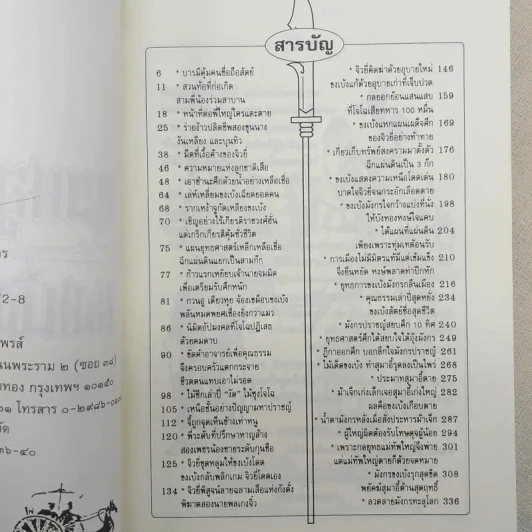 สารบัญ
6 * บารมีคุ้มคนชื่อถือสัตย์
11 * สวนท้อที่ก่อเกิด
สามพี่น้องร่วมสาบาน
18 * หน้าที่ต่อพี่ใหญ่ใครแตะตาย
25 * รายง้าวปลิดชีพสองขุนนาง
งันเหลียง และบุนทิว
38 * ผิดที่เงื้อค้างของจิวยี่
46 * ความหมายแห่งลูกชาติเสือ
48 * เอาชำนะศึกด้วยน้ำอย่างเหลือเชื่อ
64 * เล่ห์เหลี่ยมขงเบ้งเฉียดยอดคน
68 * รากเหง้าจูกัดเหลียงขงเบ้ง
70 * เชิญอย่างไร้เกียรติราชวงศ์ฮั่น
แต่เกริกเกียรติคุ้มชั่วชีวิต
75 * แผนยุทธศาสตร์เหลือเชื่อ
ฉีกแผ่นดินแยกเป็นสามก๊ก
77 * ก้าวแรกเหยียบเจ้านายจมมิด
เพื่อเตรียมรับศึกหนัก
81 * กวนอู เตียวหุย จ้องเขม็อบขงเบ้ง
พลันหมดพยศเชื่องยิ่งกว่าแมว
86 * นิมิตอัปมงคลที่โจโฉปฏิเสธ
ด้วยคมดาบ
90 * ขัดคำอาจารย์เพื่อคุณธรรม
จึงครอบครัวแตกกระจาย
ชีวิตตนแทบเอาไม่รอด
98 * ไม้ซีกเล่าปี่ "งัด" ไม้ซุงโจโฉ
105 * เหนือชั้นอย่างปัญญามหาปราชญ์
112 * จี้ถูกจุดเห็นช้างเท่าหนู
120 * พี่ระดับที่ปรึกษาหาญล้าง
สองเพชรน้องชายระดับกุนซือ
125 * จิวยี่ขุดหลุมให้ขงเบ้งโดด
ขงเบ้งกลับพลิกเกม จิวยี่โดดเอง
134 * จิวยี่พิสูจน์ลายฉลามเสือแห่งกังตั๋ง
พิฆาตสองนายพลเกงจิ๋ว
* จิวยี่คิดฆ่าด้วยอุบายใหม่ 146
ขงเบ้งแก้ด้วยอุบายเก่าที่เจ็บปวด
* กลยอกย้อนแสนแสบ 159
ที่โจโฉเสียทหาร 100 หมื่น
* ขงเบ้งแหกแผนเผด็จศึก 169
ของจิวยี่อย่างท้าทาย
* เกี่ยวเก็บทรัพย์สงครามมาตั้งตัว 176
ฉีกแผ่นดินเป็น 3 ก๊ก
* ขงเบ้งแสดงความเหนือโดดเด่น 180
บาดใจจิวยี่จนกระอักเลือดตาย
* ขงเบ้งมังกรใจกว้างแบ่งที่นั่ง 198
ให้บังทองหงษ์ใจแคบ
* ได้แผนที่แผ่นดิน 204
เพียงเพราะทุ่มเทต้อนรับ
* การเมืองไม่มีมิตรแท้มีแต่เข้มแข็ง 210
จึงยืนหยัด หงษ์พลาดท่าปีกหัก
* ยุทธการขงเบ้งมังกรลืนเมือง 216
* คุณธรรมเล่าปี่สุดหยั่ง 234
ขงเบ้งสัตย์ซื่อสุดชีวิต
* มังกรปราชญ์สยบศึก 10 ทิศ 240
* ยุทธศาสตร์ศึกใต้สยบใจได้อุ้งมังกร 249
* ฎีกาออกศึก บอกลึกใจมังกรปราชญ์ 261
* ไม้เด็ดขงเบ้ง ทำสุมาอี้รุดลงเป็นไพร่ 268
* ประมาทสุมาอี้ตาย 275
* ม้าเจ็กเก่งเล็กเจอสุมาอี้เก่งใหญ่ 282
ผลคือขงเบ้งเกือบตาย
* น้ำตามังกรหลั่งเมื่อสั่งประหารม้าเจ็ก 287
* ผู้ใหญ่ผิดต้องรับโทษดุจผู้น้อย 294
* เพราะกลยุทธแม่ทัพใหญ่จึงพ่าย 301
แต่แม่ทัพใหญ่ตายก็ด้วยจดหมาย
* มังกรขงเบ้งรุกสุดขีด 308
พยัคฆ์สุมาอี้ต้านสุดฤทธิ์
* ลวดลายมังกรทะลุโลก 336
าร
/2-8
พรส์
นนพระราม ๒ (ซอย ๓๔)
ยทอง กรุงเทพฯ ๑๐๑๕๐
๐๑ โทรสาร ๐-๒๙๘๖-๐
ัด
๓๖-๔๐